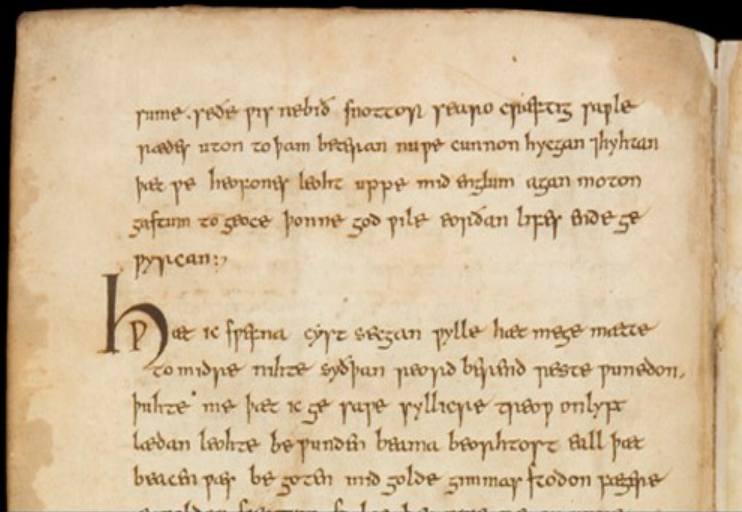 sume. seðe ƿis nebið snottor searo cræftig saƿle
rædes uton to þam beteran nuƿe cunnon hycgan ⁊hyhtan
þæt ƿe heofones leoht uppe mid englum agan moton
gastum to geoce þonne god ƿile eorðan lifes ende ge
ƿyrcan:,
Hƿæt ic sƿefna cyst secgan ƿylle hæt mege mætte
to midre nihte syðþan reord berend reste ƿunedon.
þuhte me þæt ic ge saƿe syllicre treoƿ onlyft
lædan leohte be ƿunden beama beorhtost eall þæt
beacen ƿæs be goten mid golde gimmas stodon fægere